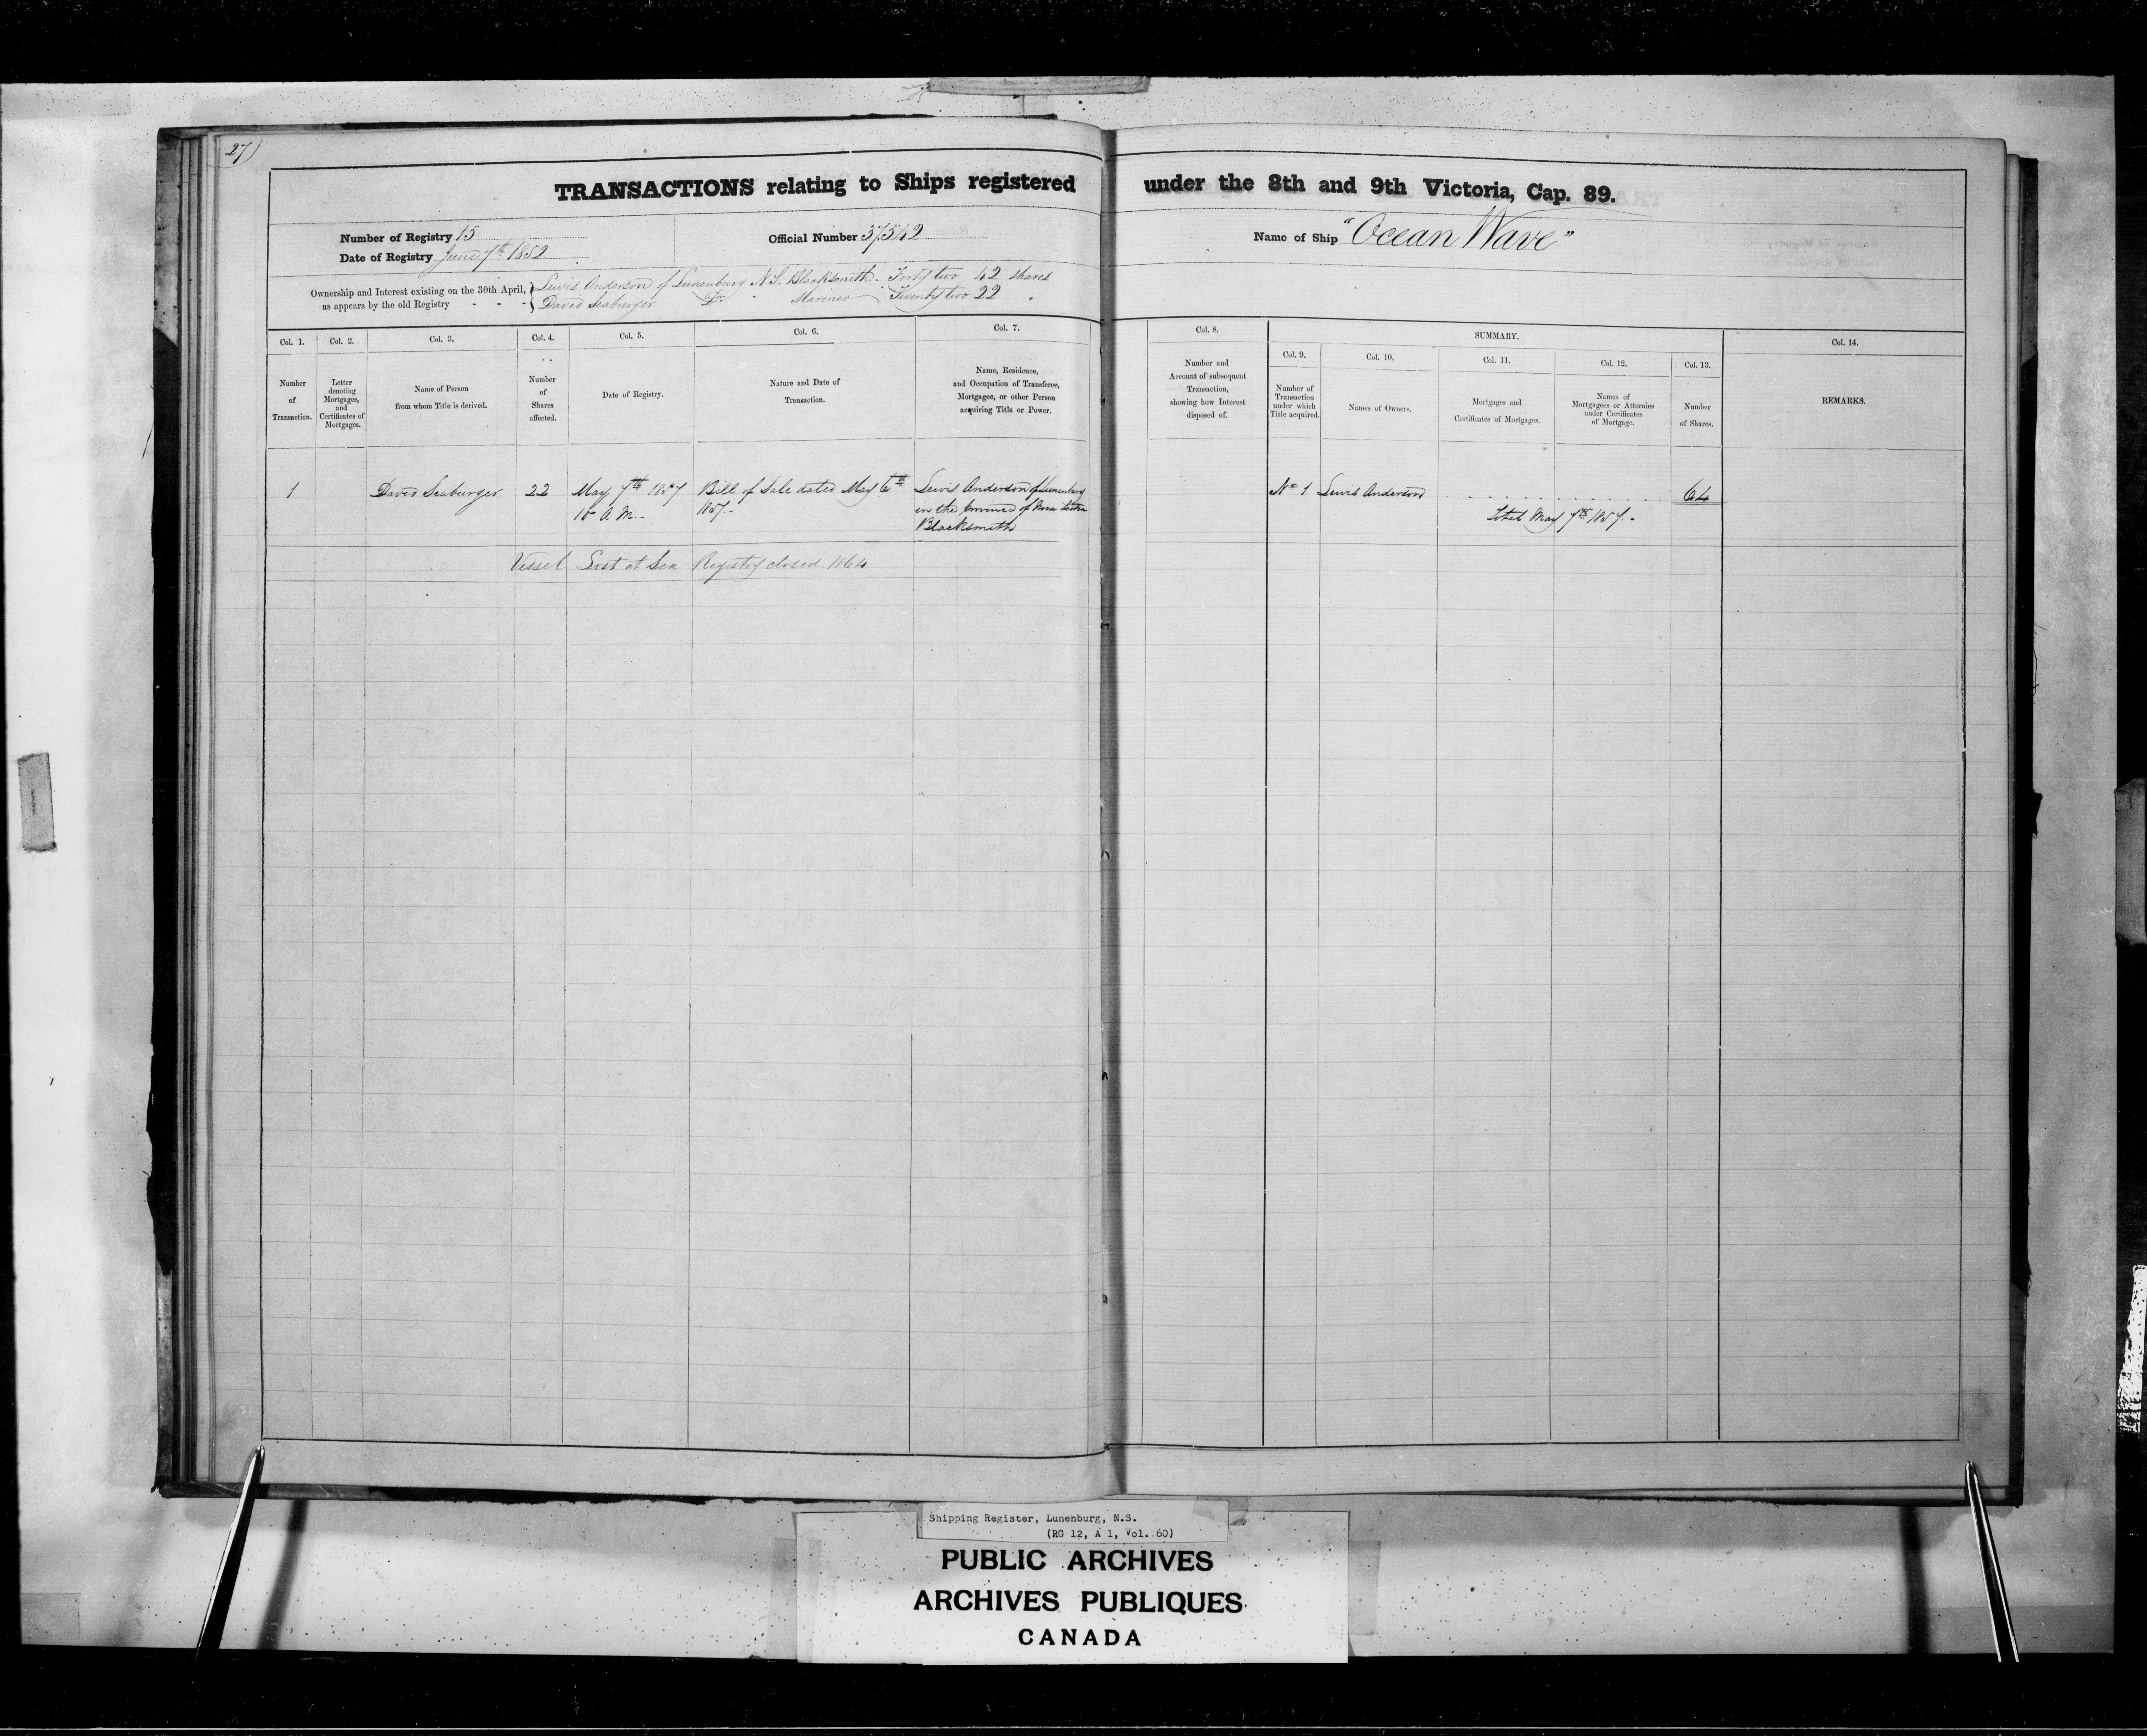 27)
TRANSACTIONS relating to Ships registered under the 8th and 9th Victoria, Cap. 89.
Number of Registry 15
Date of Registry June 7th 1852
Official Number 37,542
Name of Ship "Ocean Wave"
Ownership and Interest existing on the 30th April,
as appears by the old Registry - - -
Lewis Anderson of Lunenburg N.S. Blacksmith. Forty two 42 shares
David Seaburger Do. " Mariner Twenty two 22 "
Col. 1.
Number
of
Transaction.
Col. 2.
Letter
denoting
Mortgages,
and
Certificates of
Mortgages.
Col. 3.
Name of Person
from whom Title is derived.
Col. 4.
Number
of
Shares
affected.
Col. 5.
Date of Registry.
Col. 6.
Nature and Date of
Transaction.
Col. 7.
Name, Residence,
and Occupation of Transferee,
Mortgagee, or other Person
acquiring Title or Power.
Col. 8.
Number and
Account of subsequent
Transaction,
showing how Interest
disposed of.
SUMMARY.
Col. 9.
Number of
Transaction
under which
Title acquired.
Col. 10.
Names of Owners.
Col. 11.
Mortgages and
Certificates of Mortgages.
Col. 12.
Names of
Mortgagees or Attornies
under Certificates
of Mortgage.
Col. 13.
Number
of Shares.
Col. 14.
REMARKS.
1
David Seaburger
22
May 7th 1857
10 A.M.
Bill of Sale dated May 6th
1857.
Lewis Anderson of Lunenburg
in the Province of Nova Scotia
Blacksmith
No 1 Lewis Anderson . . . . . . . . . . . 64
Total May 7th 1857.
Vessel Lost at Sea Registry closed 1864
Shipping Register, Lunenburg, N.S.
(RG 12, A 1, Vol. 60)
PUBLIC ARCHIVES
ARCHIVES PUBLIQUES
CANADA